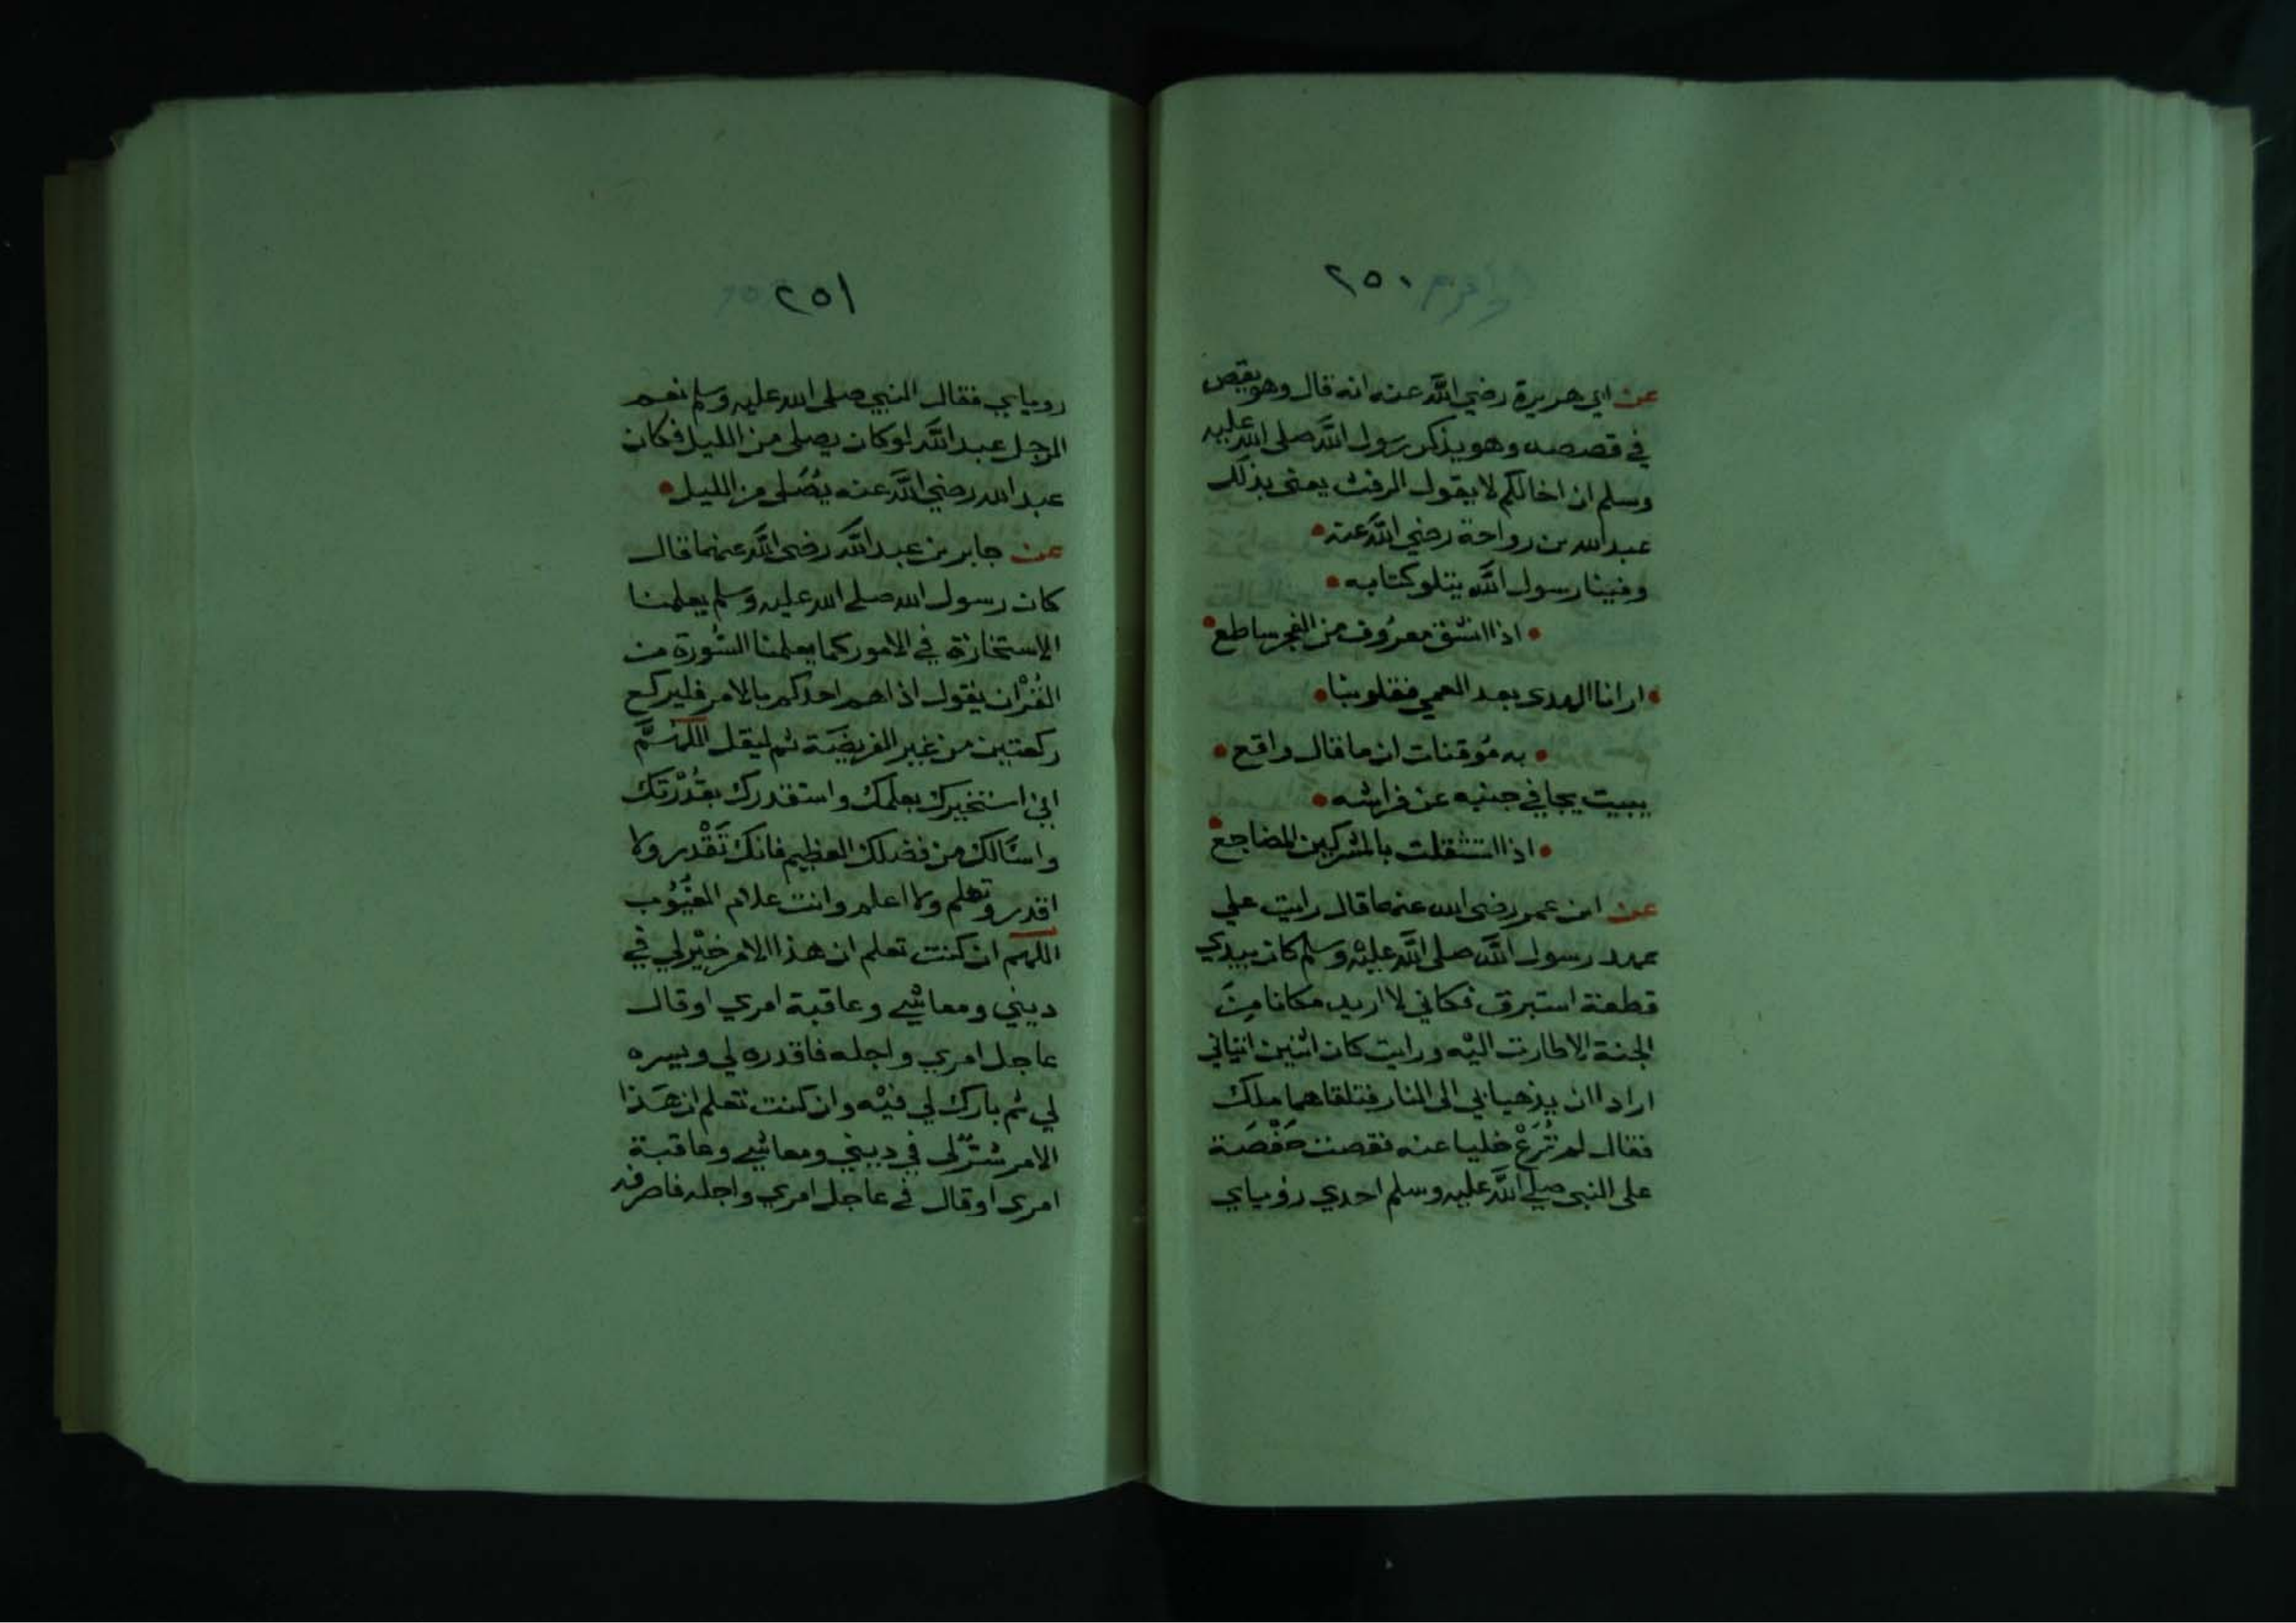 ٢٥٠
عن ابي هريرة رضي الله عنه انه قال وهو يقص
في قصصه وهو يذكر رسول الله صلى الله عليه
وسلم ان اخالكم لا يقول الرفث يعنى بذلك
عبد الله بن رواحة رضي الله عنه
وفينا رسول الله يتلو كتابه
اذا انشق معروف من الفجر ساطع
ارانا الهدى بعد العمي فقلوبنا
به موقنات ان ما قال واقع
يبيت يجافي جنبه عن فراشه
اذا استثقلت بالمشركين المضاجع
عن ابن عمر رضى الله عنهما قال رايت علي
عهد رسول الله صلى الله عليه وسلم كان بيدي
قطعة استبرق فكاني لا اريد مكانا من
الجنة الا طارت اليه ورايت كان اثنين اتياني
ارادا ان يذهبا بي الى النار فتلقاهما ملك
فقال لم ترع خليا عنه فقصت حفصة
على النبي صلي الله عليه وسلم احدي رؤياي
٢٥١
روياي فقال النبي صلى الله عليه وسلم نعم
الرجل عبد الله لو كان يصلى من الليل فكان
عبد الله رضي الله عنه يصلى من الليل
عن جابر بن عبد الله رضى الله عنهما قال
كان رسول الله صلى الله عليه وسلم يعلمنا
الاستخارة في الامور كما يعلمنا السورة من
القرآن يقول اذا هم احدكم بالامر فليركع
ركعتين من غير الفريضة ثم ليقل اللهم
اني استخيرك بعلمك واستقدرك بقدرتك
واسالك من فضلك العظيم فانك تقدر ولا
اقدر وتعلم ولا اعلم وانت علام الغيوب
اللهم ان كنت تعلم ان هذا الامر خير لي في
ديني ومعاشي وعاقبة امري او قال
عاجل امري واجله فاقدره لي ويسره
لي ثم بارك لي فيه وان كنت تعلم ان هذا
الامر شر لي في ديني ومعاشي وعاقبة
امرى او قال في عاجل امري واجله فاصرفه